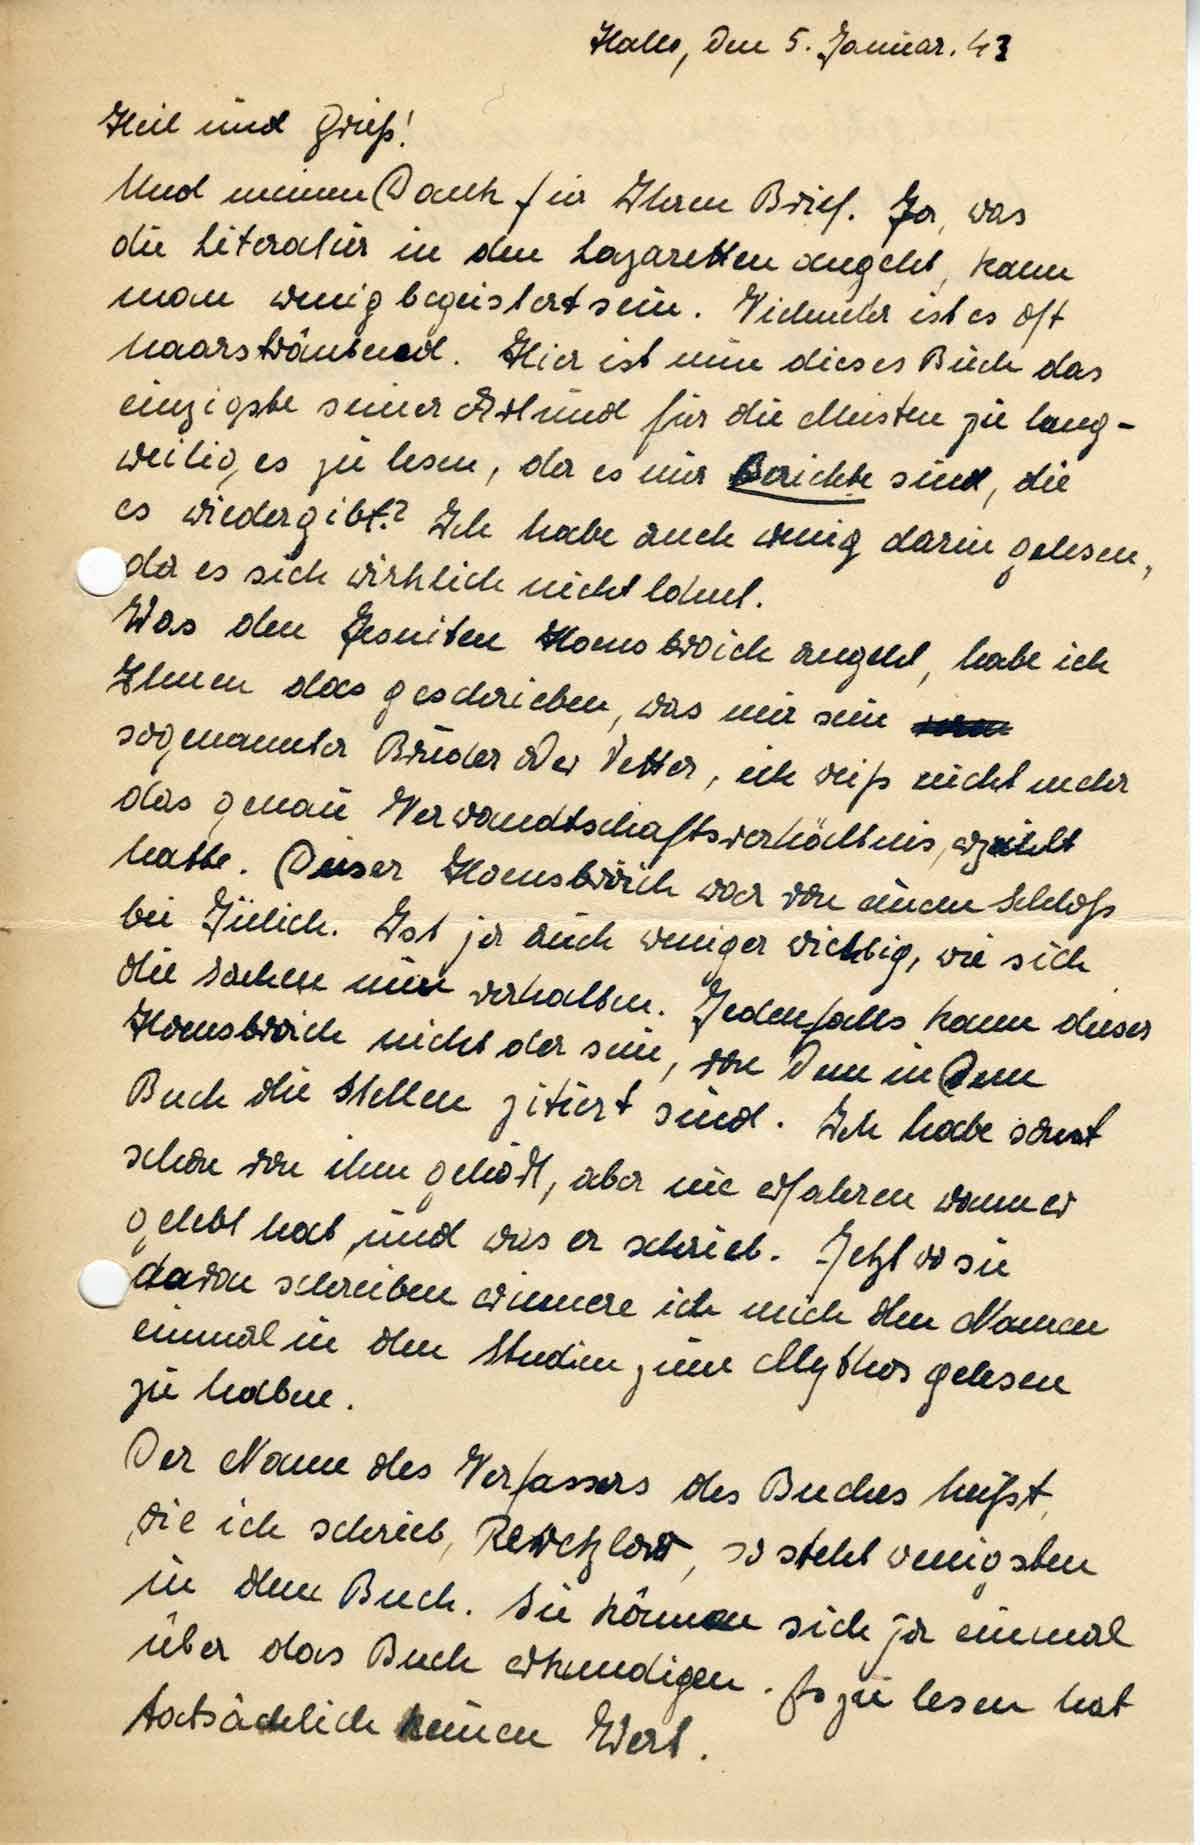 Halle, den 5. Januar. 43
Heil und Grüß!
Und meinen Dank für Ihren Brief. Ja, was
die Literatur in den Lazaretten angeht, kann
man wenig begeistert sein. Vielmehr ist es oft
haarsträubend. Hier ist nun dieses Buch das
einzigste seiner Art und für die Meisten zu lang-
weilig, es zu lesen, da es nur Berichte sind, die
es wiedergibt? Ich habe auch wenig darin gelesen,
da es sich wirklich nicht lohnt.
Was den Jesuiten Hoensbroich angeht, habe ich
Ihnen das geschrieben, was mir sein
sogenannter Bruder oder Vetter, ich weiß nicht mehr
das genau Verwandtschaftsverhältnis, erzählt
hatte. Dieser Hoensbroich war von einem Schloß
bei Jülich. Ist ja auch weniger wichtig, wie sich
die Sachen nun verhalten. Jedenfalls kann dieser
Hoensbroich nicht der sein, von dem in dem
Buch die Stellen zitiert sind. Ich habe sonst
schon von ihm gehört, aber nie erfahren wann er
gelebt hat, und was er schrieb. Jetzt wo sie
davon schreiben erinnere ich mich den Namen
einmal in den Studien zum Mythos gelesen
zu haben.
Der Name des Verfassers des Buches heißt,
wie ich schrieb, so steht wenigsten
in dem Buch. Sie können sich ja einmal
über das Buch erkundigen. Es zu lesen hat
tatsächlich keinen Wert.